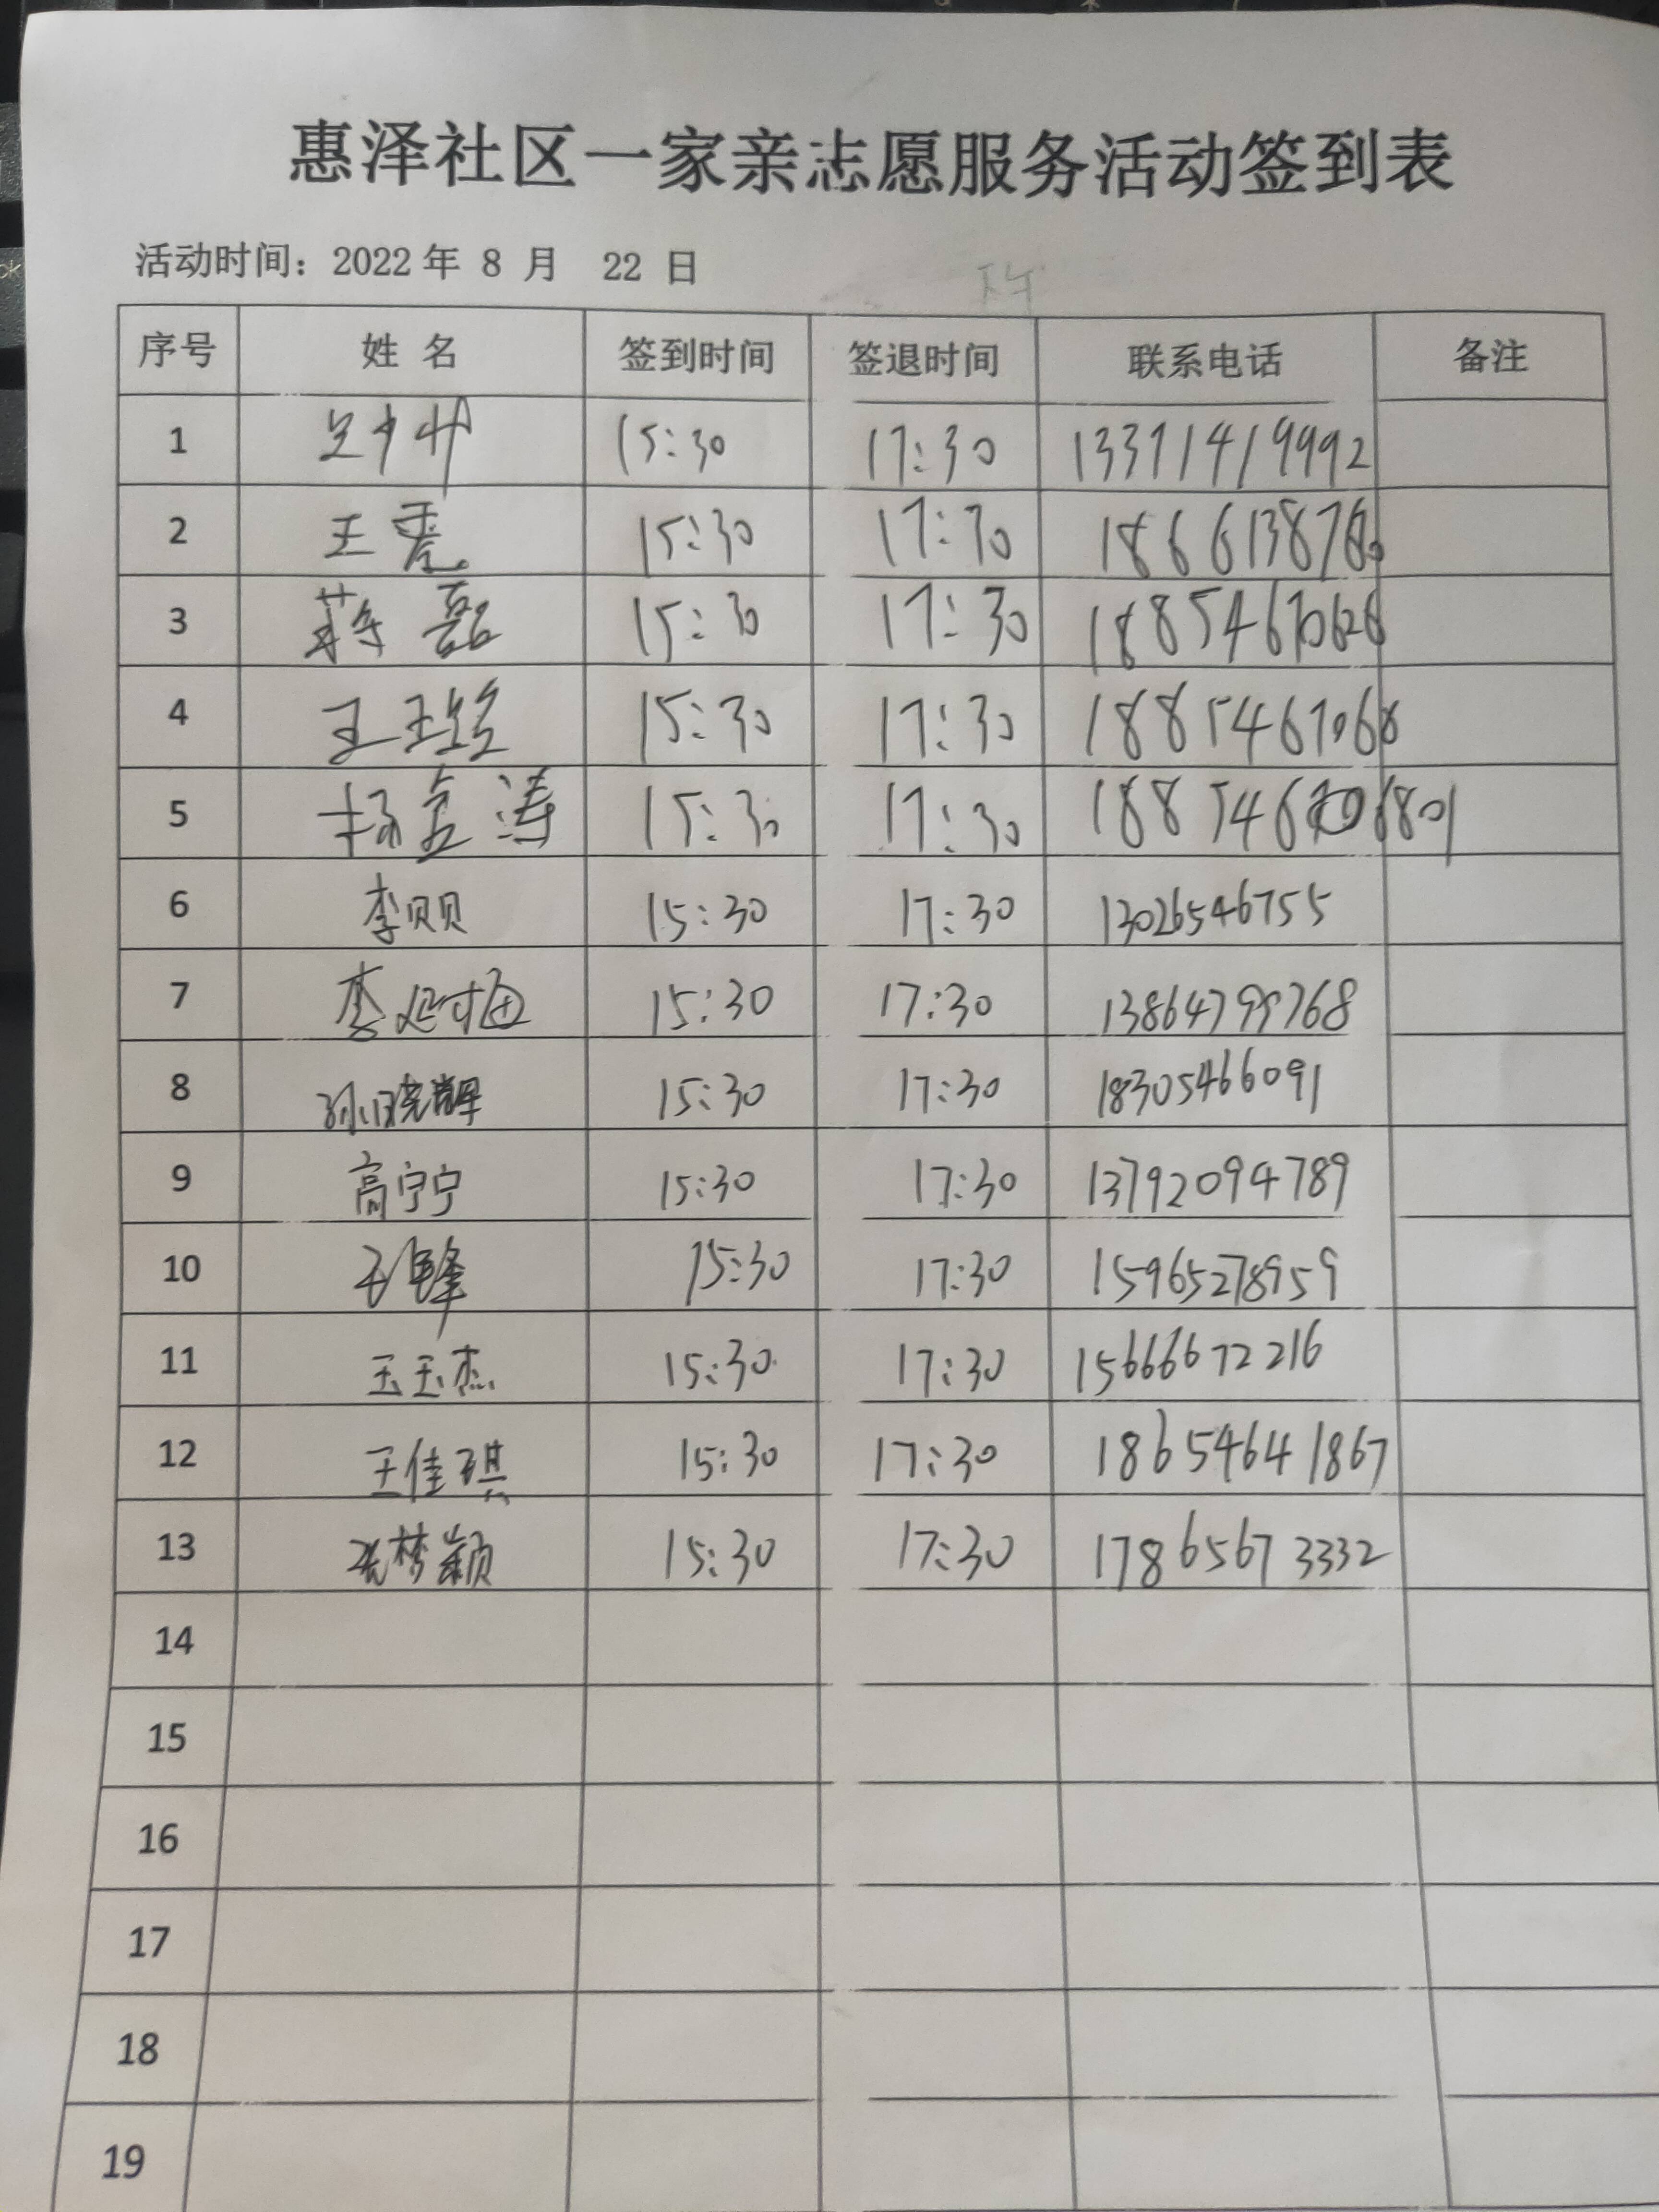 惠泽社区一家亲志愿服务活动签到表
活动时间：2022 年 8 月 22 日
下午
序号 姓 名 签到时间 签退时间 联系电话 备注
1 15:30 17:30
2 王 15:30 17:30
3 蒋磊 15:30 17:30
4 王 15:30 17:30
5 杨 涛 15:30 17:30
6 李贝贝 15:30 17:30 13026546755
7 李 15:30 17:30 13864799768
8 孙晓辉 15:30 17:30 18305466091
9 高宁宁 15:30 17:30 13792094789
10 15:30 17:30 15965278959
11 王玉杰 15:30 17:30 15666672216
12 王佳琪 15:30 17:30 18654641867
13 张梦颖 15:30 17:30 17865673332
14
15
16
17
18
19